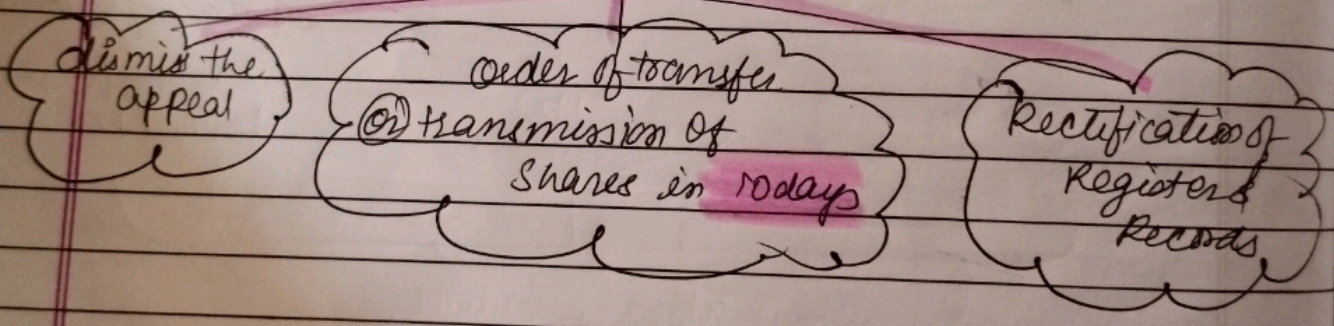 dismiss the
appeal
order of transfer
(or) transmission of
shares in 10days
Rectification of
Registers &
Records